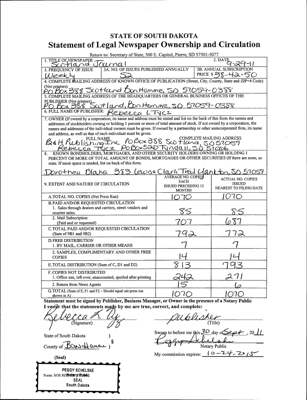 STATE OF SOUTH DAKOTA
Statement of Legal Newspaper Ownership and Circulation
Return to: Secretary of State, 500 E. Capitol, Pierre, SD 57501-5077
1. TITLE OF NEWSPAPER
Scotland Journal
2. DATE
9-29-11
3. FREQUENCY OF ISSUE
Weekly
3A. NO. OF ISSUES PUBLISHED ANNUALLY
52
3B. ANNUAL SUBSCRIPTION
PRICE $
4. COMPLETE MAILING ADDRESS OF KNOWN OFFICE OF PUBLICATION (Street, City, County, State and ZIP+4 Code)
(Not printers)
PO Box 388 Scotland, Bon Homme, SD 57059-0388
5. COMPLETE MAILING ADDRESS OF THE HEADQUARTERS OR GENERAL BUSINESS OFFICE OF THE
PUBLISHER (Not printers)
PO Box 388 Scotland, Bon Homme, SD 57059-0388
6. FULL NAME OF PUBLISHER: Rebecca L Tycz
7. OWNER (If owned by a corporation, its name and address must be stated and list on the back of this form the names and
addresses of stockholders owning or holding 1 percent or more of total amount of stock. If not owned by a corporation, the
names and addresses of the individual owners must be given. If owned by a partnership or other unincorporated firm, its name
and address, as well as that of individual must be given.
FULL NAME COMPLETE MAILING ADDRESS
B & H Publishing Inc PO Box 388 Scotland SD 57059
Rebecca Tycz PO Box
8. KNOWN BONDHOLDERS, MORTGAGES, AND OTHER SECURITY HOLDERS OWNING OR HOLDING 1
PERCENT OR MORE OF TOTAL AMOUNT OF BONDS, MORTGAGES OR OTHER SECURITIES (If there are none, so
state. If more space is needed, list on back of this form.
Dorothea Blaha 383 Lewis & Clark Trail Yankton, SD 57059
9. EXTENT AND NATURE OF CIRCULATION
AVERAGE NO. COPIES
EACH
ISSUED PRECEDING 12
MONTHS
TOTAL NO. COPIES
ISSUED
NEAREST TO FILING DATE
A. TOTAL NO. COPIES (Net Press Run) 1070 1070
B. PAID AND/OR REQUESTED CIRCULATION
1. Sales through dealers and carriers, street vendors and
counter sales. 85 85
2. Mail Subscription
(Paid and or requested) 707 687
C. TOTAL PAID AND/OR REQUESTED CIRCULATION
(Sum of 9B1 and 9B2) 792 772
D. FREE DISTRIBUTION
1. BY MAIL, CARRIER OR OTHER MEANS 7 7
2. SAMPLES, COMPLIMENTARY AND OTHER FREE
COPIES 14 14
E. TOTAL DISTRIBUTION (Sum of C, D1 and D2) 813 793
F. COPIES NOT DISTRIBUTED
1. Office use, left over, unaccounted, spoiled after printing 242 271
2. Return from News Agents 15 6
G. TOTAL (Sum of E, F1 and F2 - Should equal net press run
shown in A) 1070 1070
Statement must be signed by Publisher, Business Manager, or Owner in the presence of a Notary Public
I verify that the statements made by me are true, correct, and complete:
Rebecca L Tycz
(Signature)
publisher
(Title)
State of South Dakota
County of Bon Homme
Sworn to before me this 30 day of Sept, 2011
Peggy Schelske
Notary Public
My commission expires: 10-24-2015
(Seal)
PEGGY SCHELSKE
Notary Public
SEAL
South Dakota